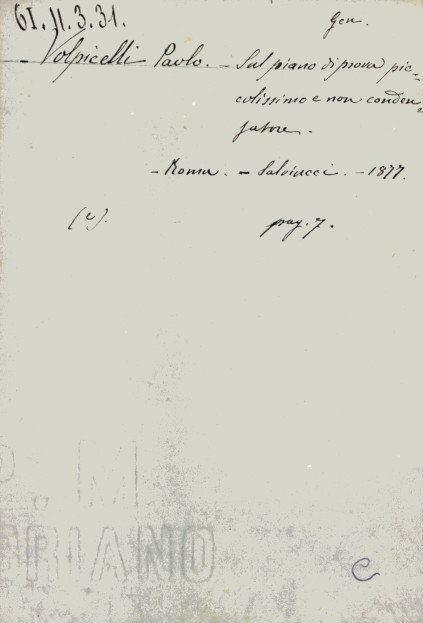 61.11.3.31.
Gen.
Volpicelli Paolo. - Sul piano di prova pic=
colissimo e non conden=
satore.
- Roma. - Salviucci. - 1877.
(e). pag. 7.
P. M
BRIANO
C